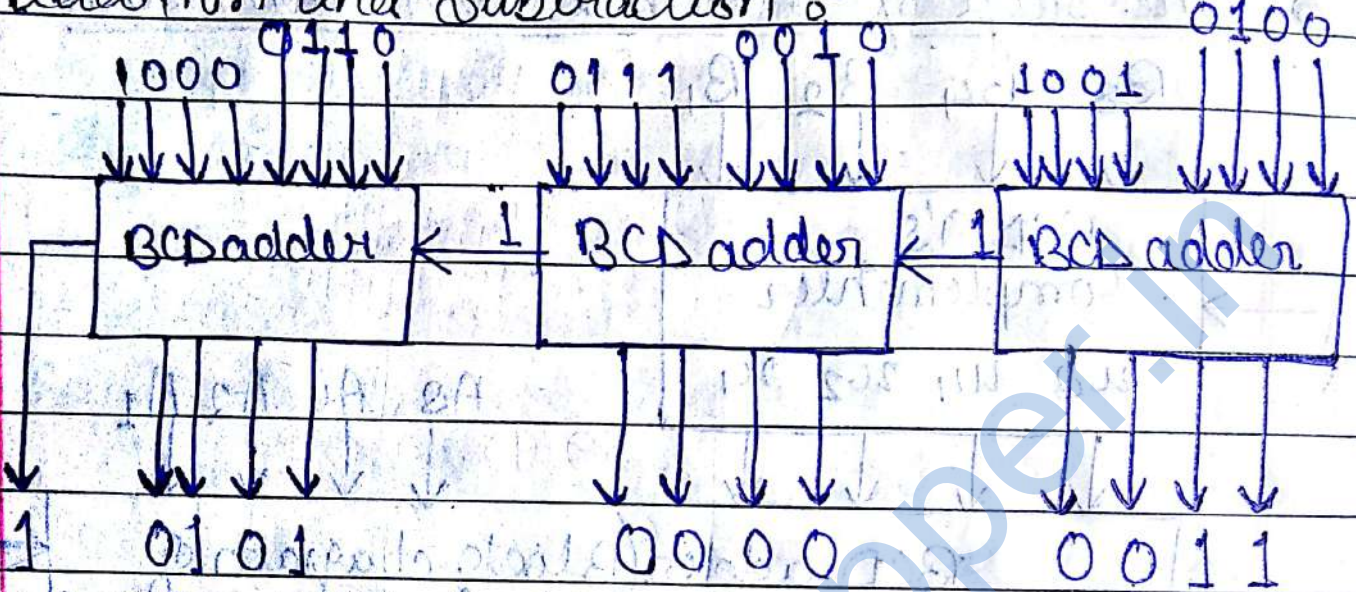 and Subtraction :
0110 0010 0100
1000 0111 1001
BCD adder 1 BCD adder 1 BCD adder
1 0101 0000 0011